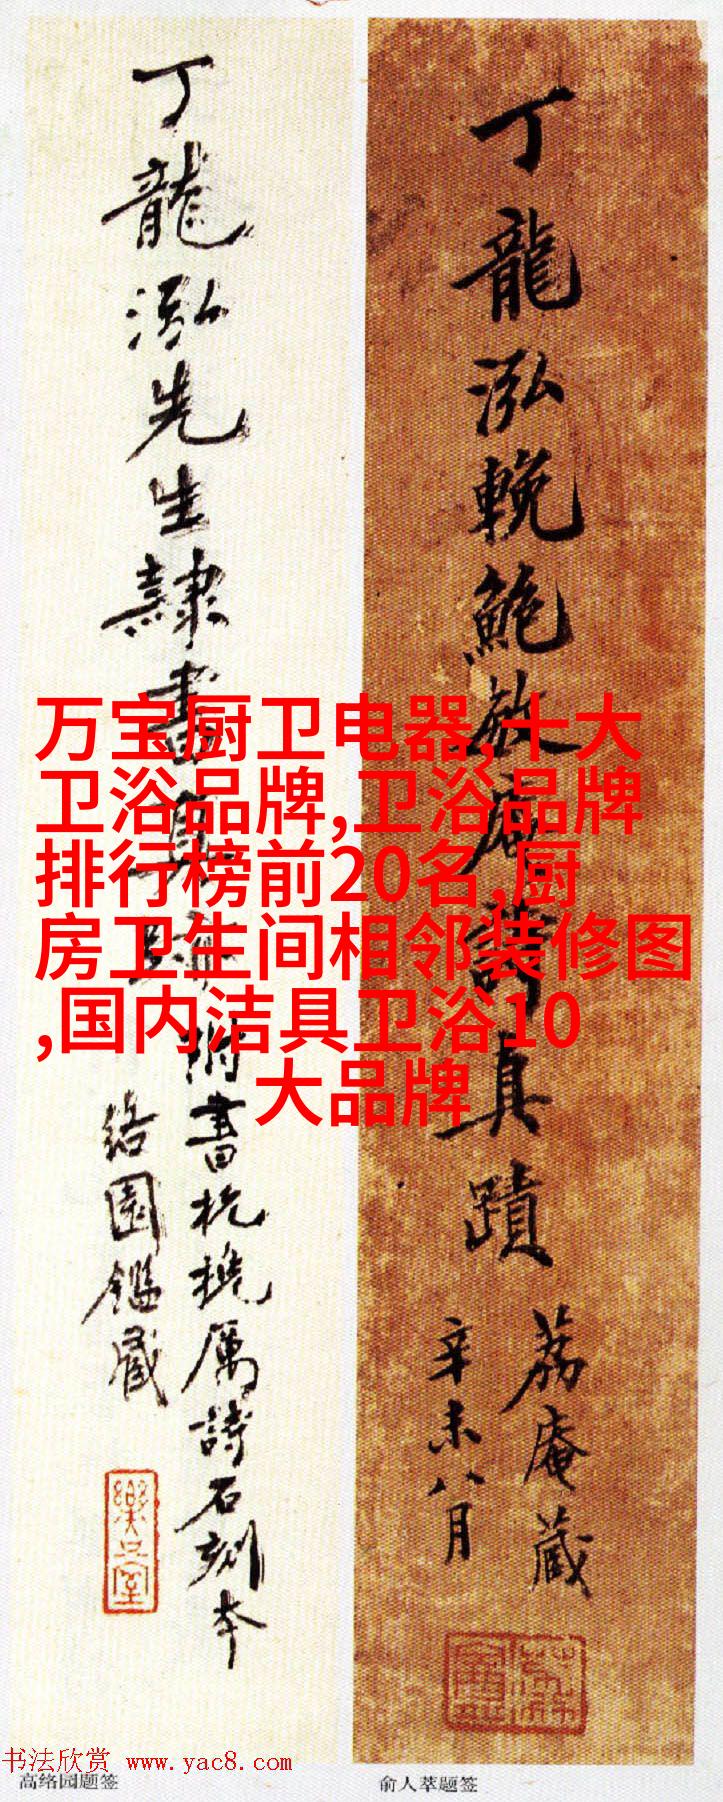 丁龍泓輓鮑敖庵詩真蹟
荔庵蔵
辛未八月
丁龍泓先生隸書真蹟
附書杭堇浦厲詩石刻本
络園鑑蔵
万宝厨卫电器,十大
卫浴品牌,卫浴品牌
排行榜前20名,厨
房卫生间相邻装修图
,国内洁具卫浴10
大品牌
书法欣赏 www.yac8.com
高络园题签
俞人萃题签